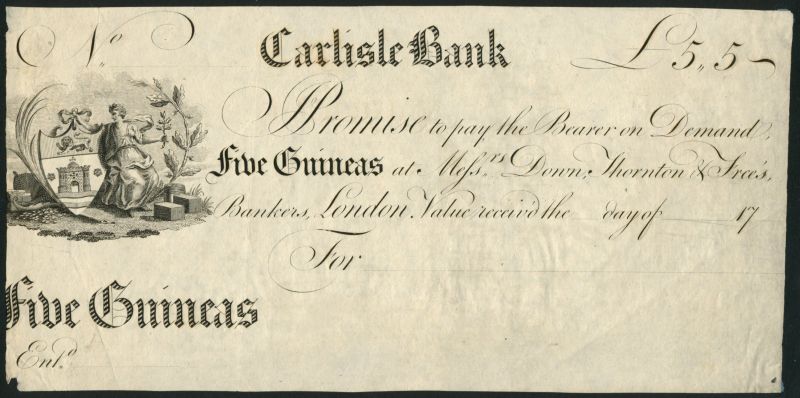 No. Carlisle Bank £5,,5
I Promise to pay the Bearer on Demand,
Five Guineas at Messrs. Down, Thornton & Free's,
Bankers, London Value receiv'd the day of 17
For
Five Guineas
Entd.